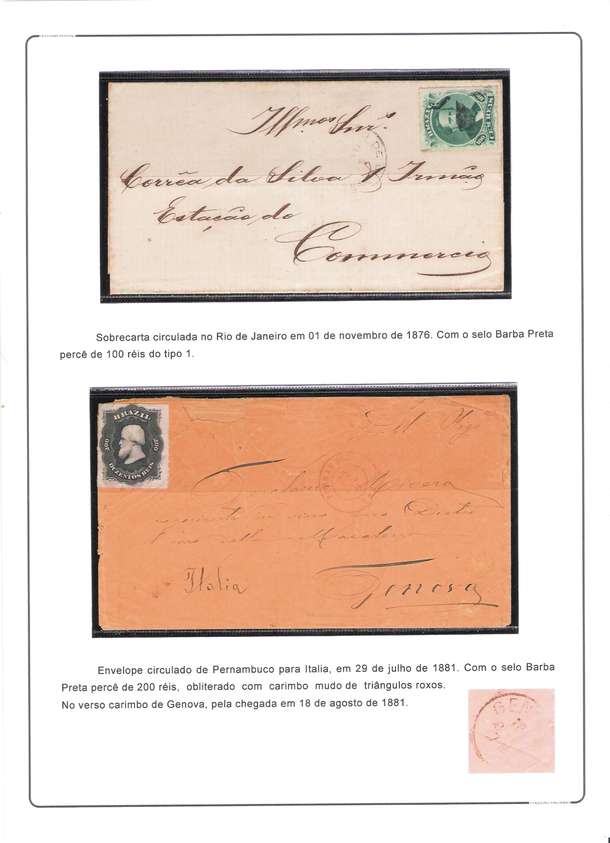 Illmos Snrs.
Corrêa da Silva & Irmão
Estação do
Commercio
Sobrecarta circulada no Rio de Janeiro em 01 de novembro de 1876. Com o selo Barba Preta
percê de 100 réis do tipo 1.
BRAZIL
200 200
DUZENTOS REIS
Italia
Genova
Envelope circulado de Pernambuco para Italia, em 29 de julho de 1881. Com o selo Barba
Preta percê de 200 réis, obliterado com carimbo mudo de triângulos roxos.
No verso carimbo de Genova, pela chegada em 18 de agosto de 1881.
GEN